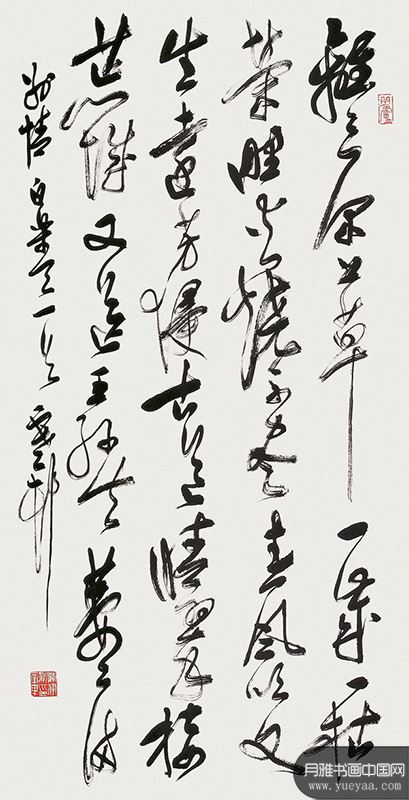 離々原上草一歲一枯
榮野火燒不盡春風吹又
生遠芳侵古道晴翠接
荒城又送王孫去萋々滿
別情 白樂天一首
月雅书画中国网
www.yueyaa.com